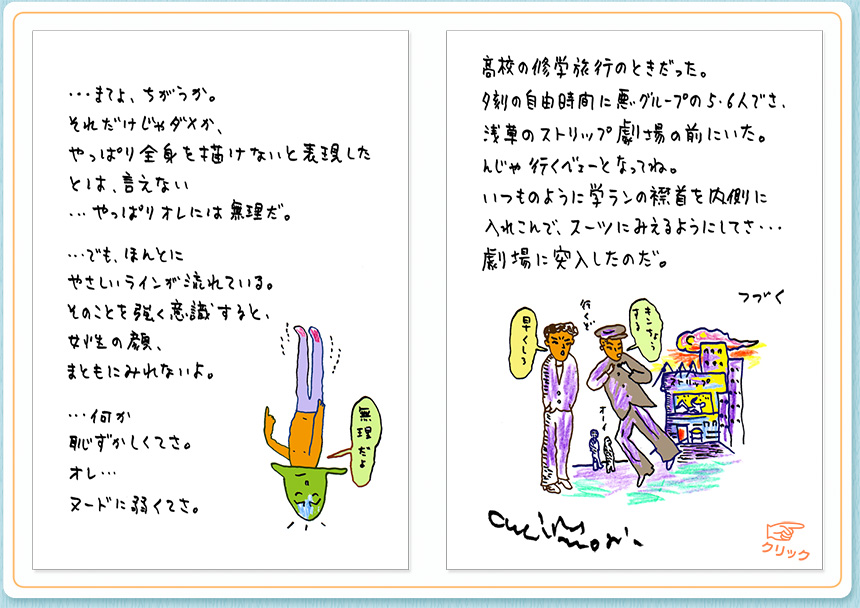 …まてよ、ちがうか。
それだけじゃダメか、
やっぱり全身を描けないと表現した
とは、言えない
…やっぱりオレには無理だ。
…でも、ほんとに
やさしいラインが流れている。
そのことを強く意識すると、
女性の顔、
まともにみれないよ。
…何か
恥ずかしくてさ。
オレ…
ヌードに弱くてさ。
無理だよ
高校の修学旅行のときだった。
夕刻の自由時間に悪グループの5・6人でさ、
浅草のストリップ劇場の前にいた。
んじゃ行くベェーとなってね。
いつものように学ランの襟首を内側に
入れこんで、スーツにみえるようにしてさ…
劇場に突入したのだ。
つづく
早くしろ
行くぞ
キンチョウ
する
オーイ
ストリップ
クリック